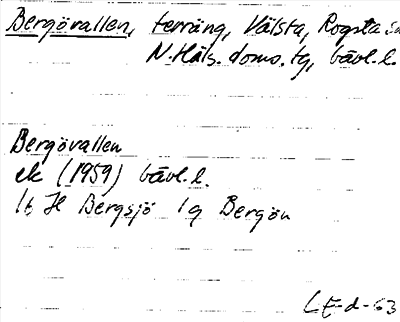 Bergövallen, terräng, Välsta, Rogsta sn
N. Häls. doms. tg, Gävl. l.
Bergövallen
ek (1959) Gävl. l.
16 H Bergsjö 1g Bergön